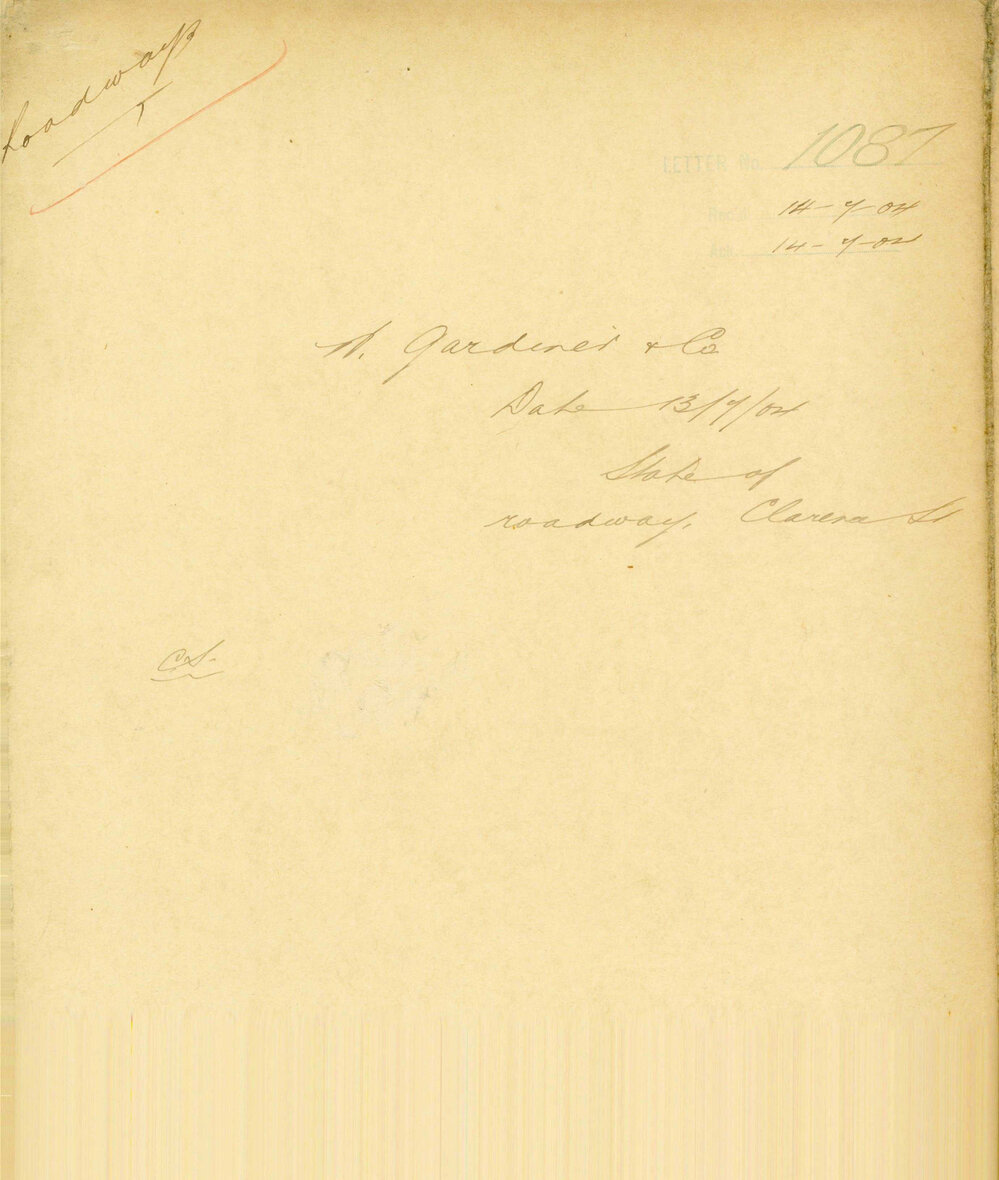 Roadways
LETTER No. 1087
Rec'd 14-7-04
Ack. 14-7-04
W. Gardiner & Co
Date 13/7/04
State of
roadway, Clarence St
C.S.